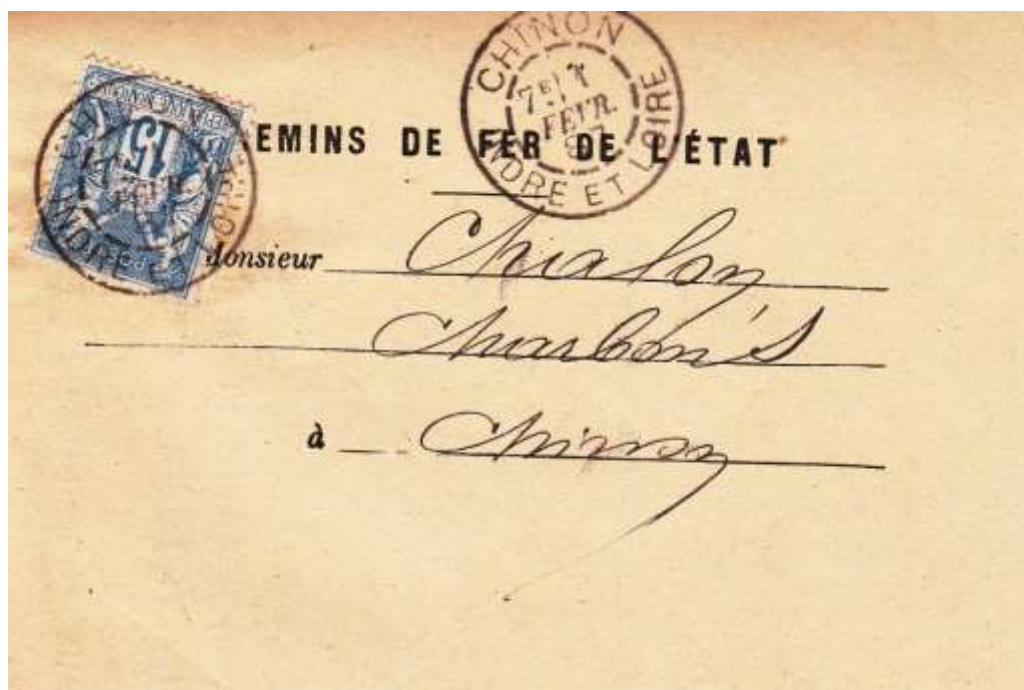 CHINON
7E
FEVR.
INDRE ET LOIRE
15
INDRE ET LOIRE
EMINS DE FER DE L'ÉTAT
Monsieur Chalon
Charbons
à Chinon